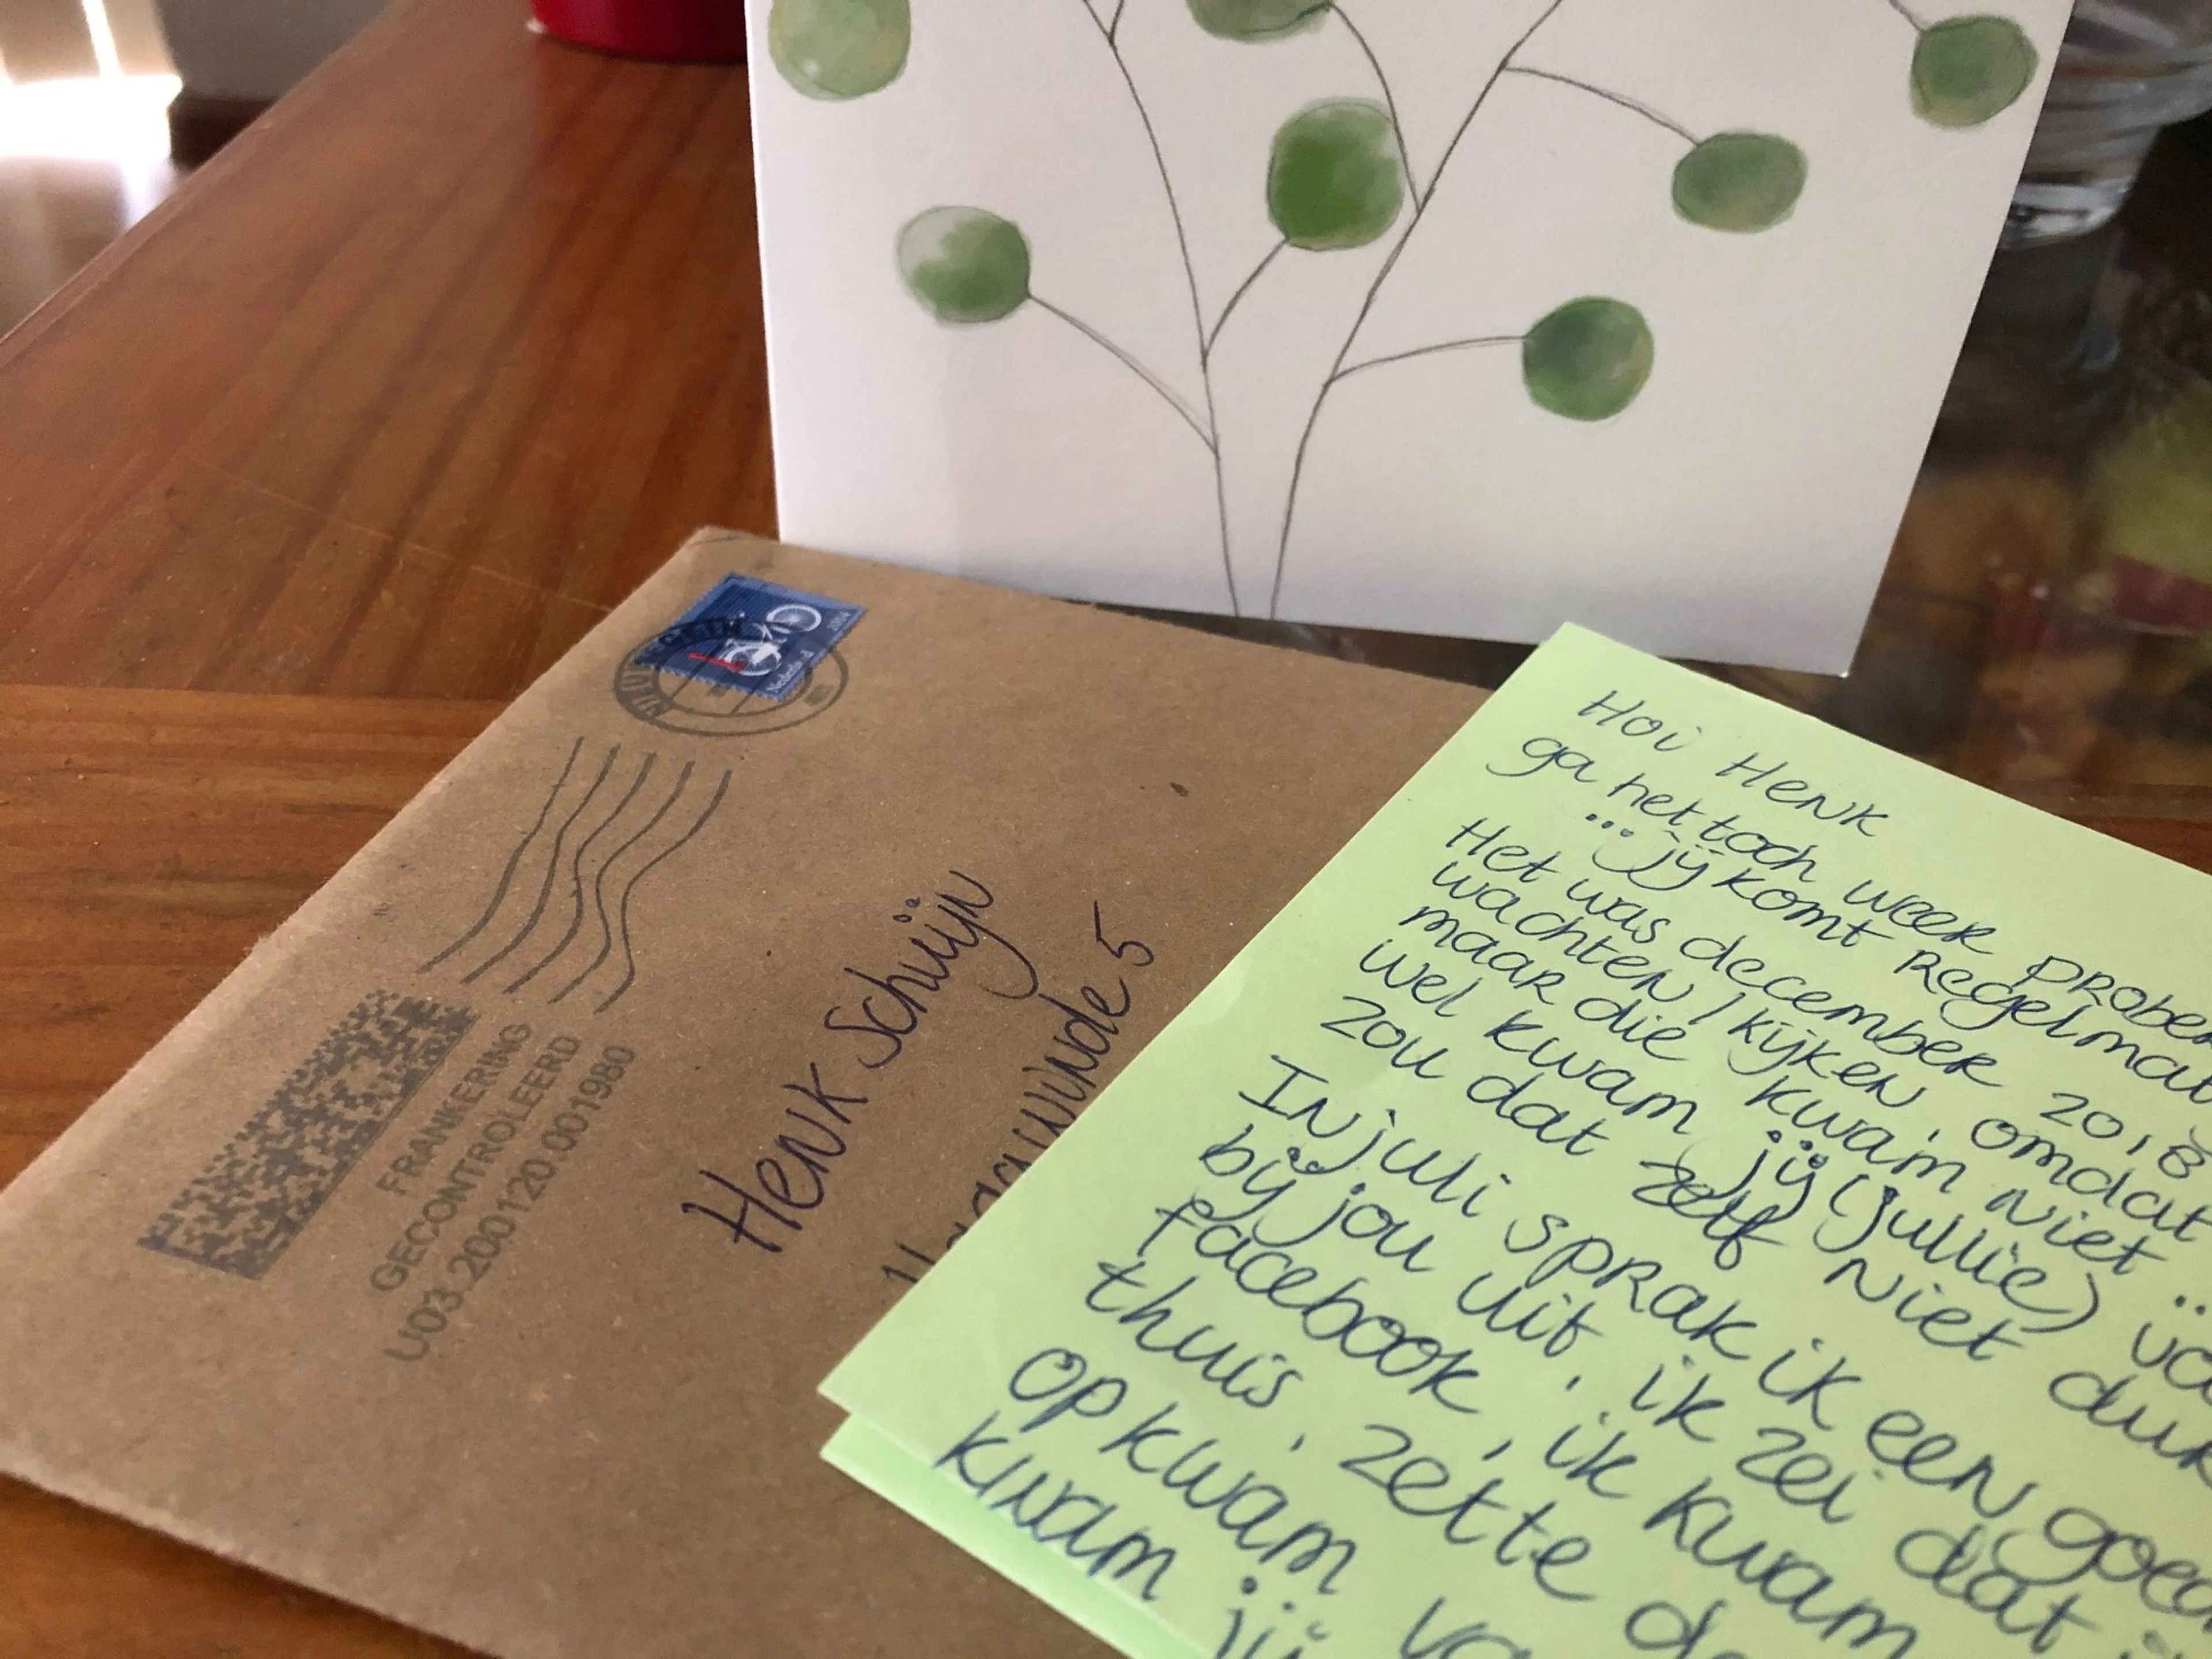 Nederland 2014
FRANKERING
GECONTROLEERD
U03 200120.001980
Henk Schuijn
winde 5
Hoi Henk
ga het toch weer prober
... jij komt regelmat
Het was december 2018
wachten / kijken, omdat
maar die kwam niet ..
wel kwam jij (jullie)
zou dat zelf niet
In juli sprak ik een goed
bij jou uit, ik zei dat
facebook, ik kwam
thuis, zette de
op kwam
kwam jij